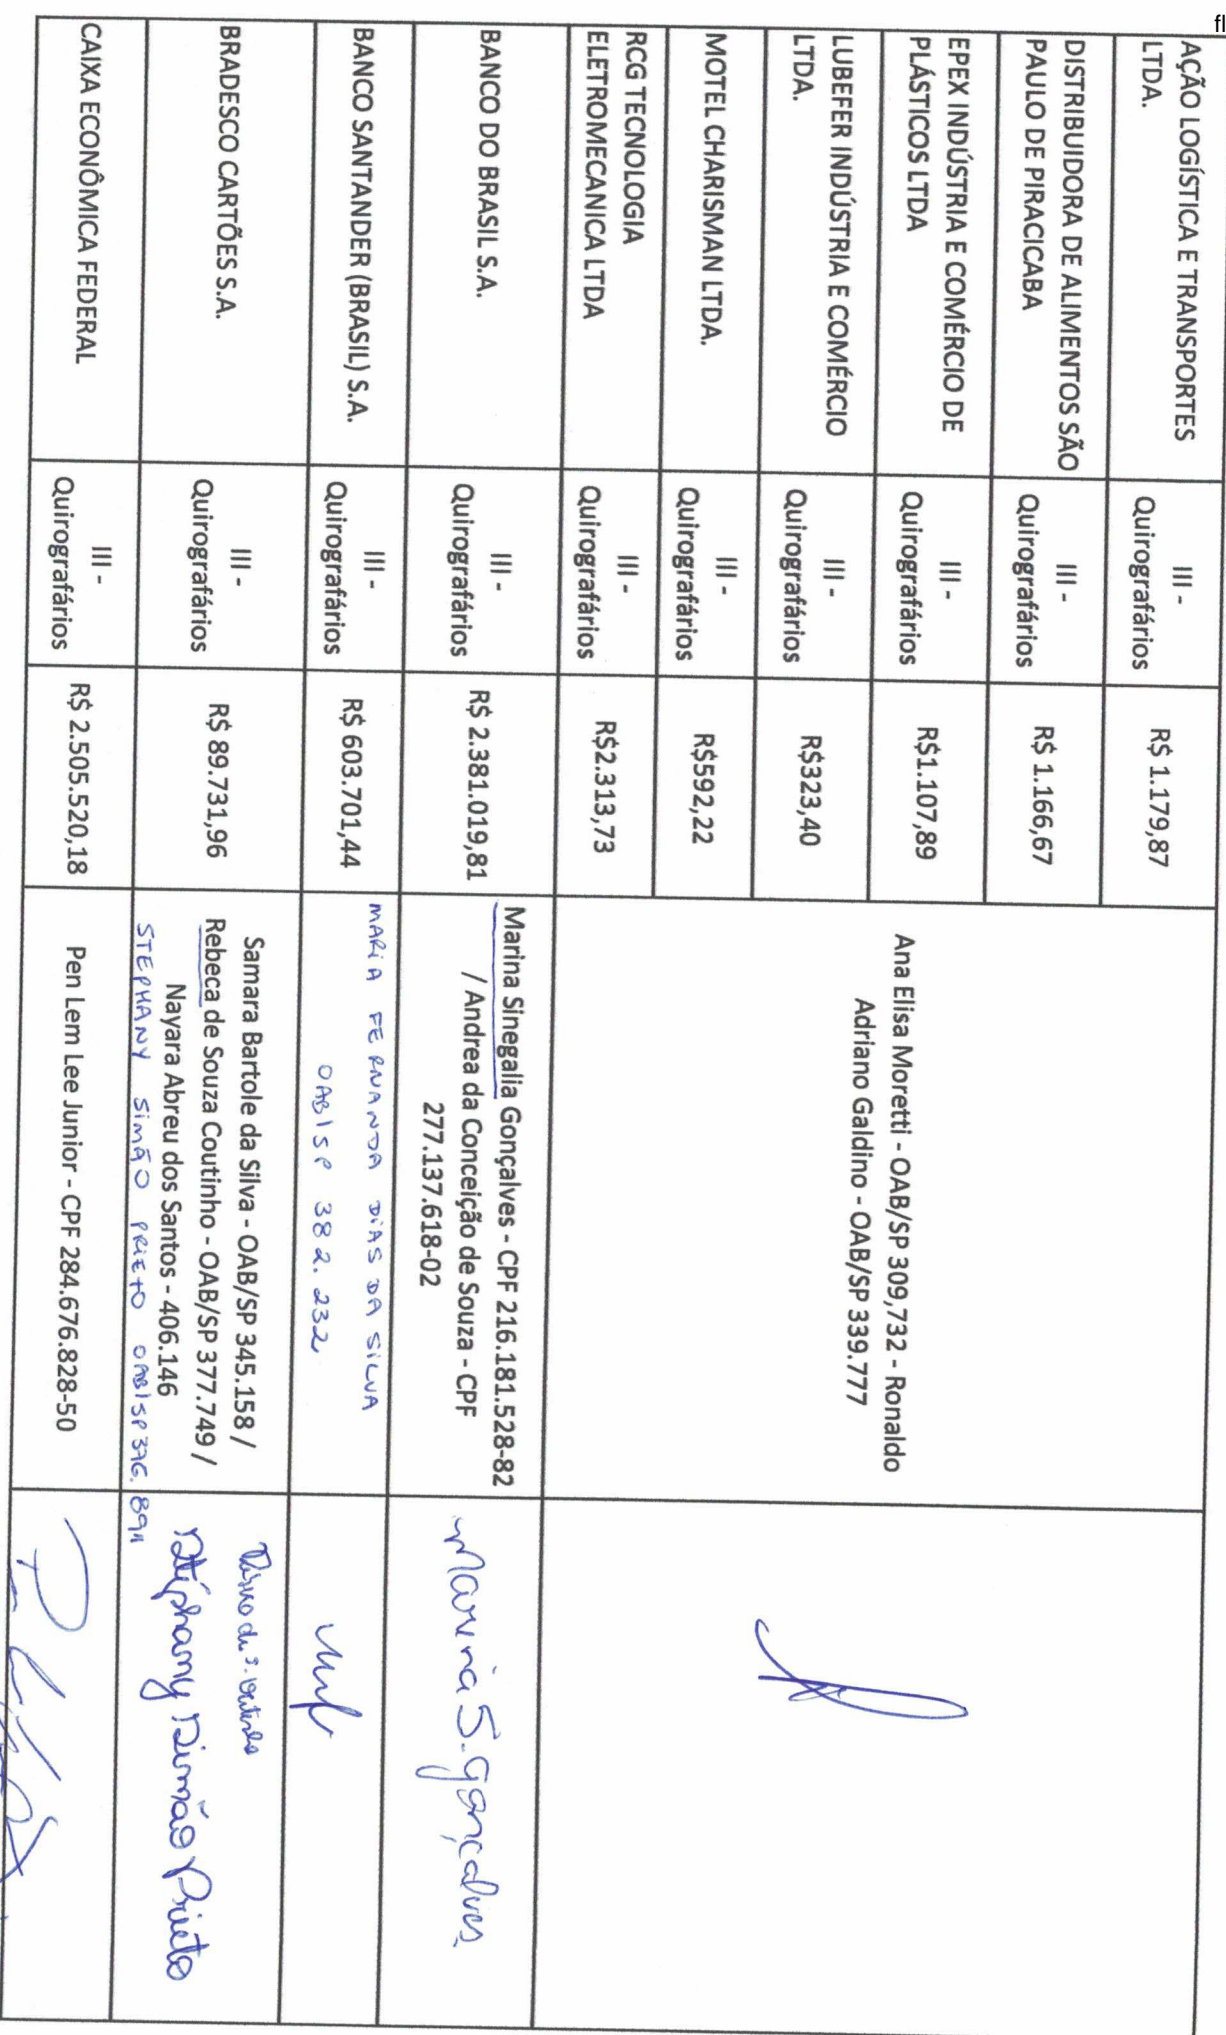 fl
AÇÃO LOGÍSTICA E TRANSPORTES
LTDA.
III -
Quirografários
R$ 1.179,87
DISTRIBUIDORA DE ALIMENTOS SÃO
PAULO DE PIRACICABA
III -
Quirografários
R$ 1.166,67
EPEX INDÚSTRIA E COMÉRCIO DE
PLÁSTICOS LTDA
III -
Quirografários
R$1.107,89
LUBEFER INDÚSTRIA E COMÉRCIO
LTDA.
III -
Quirografários
R$323,40
MOTEL CHARISMAN LTDA.
III -
Quirografários
R$592,22
RCG TECNOLOGIA
ELETROMECANICA LTDA
III -
Quirografários
R$2.313,73
Ana Elisa Moretti - OAB/SP 309,732 - Ronaldo
Adriano Galdino - OAB/SP 339.777
BANCO DO BRASIL S.A.
III -
Quirografários
R$ 2.381.019,81
Marina Sinegalia Gonçalves - CPF 216.181.528-82
/ Andrea da Conceição de Souza - CPF
277.137.618-02
Marina S. Gonçalves
BANCO SANTANDER (BRASIL) S.A.
III -
Quirografários
R$ 603.701,44
MARIA FERNANDA DIAS DA SILVA
OAB/SP 382.232
BRADESCO CARTÕES S.A.
III -
Quirografários
R$ 89.731,96
Samara Bartole da Silva - OAB/SP 345.158 /
Rebeca de Souza Coutinho - OAB/SP 377.749 /
Nayara Abreu dos Santos - 406.146
STEPHANY SIMÃO PRIETO OAB/SP 376.891
Stéphany Simão Prieto
CAIXA ECONÔMICA FEDERAL
III -
Quirografários
R$ 2.505.520,18
Pen Lem Lee Junior - CPF 284.676.828-50